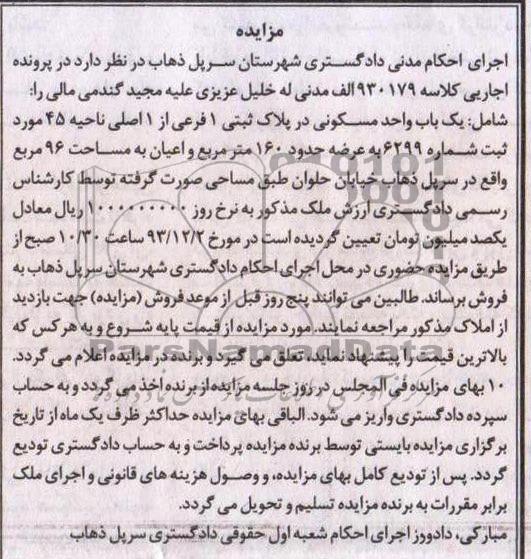 مزایده
اجرای احکام مدنی دادگستری شهرستان سرپل ذهاب در نظر دارد در پرونده
اجاریی کلاسه ۹۳۰۱۷۹الف مدنی له خلیل عزیزی علیه مجید گندمی مالی را:
شامل: یک باب واحد مسکونی در پلاک ثبتی ۱ فرعی از ۱ اصلی ناحیه ۴۵ مورد
ثبت شماره ۶۲۹۹ به عرضه حدود ۱۶۰ متر مربع و اعیان به مساحت ۹۶ مربع
واقع در سرپل ذهاب خیابان حلوان طبق مساحی صورت گرفته توسط کارشناس
رسمی دادگستری ارزش ملک مذکور به نرخ روز ۱۰۰۰۰۰۰۰۰۰ ریال معادل
یکصد میلیون تومان تعیین گردیده است در مورخ ۹۳/۱۲/۲ ساعت ۱۰/۳۰ صبح از
طریق مزایده حضوری در محل اجرای احکام دادگستری شهرستان سرپل ذهاب به
فروش برساند. طالبین می توانند پنج روز قبل از موعد فروش (مزایده) جهت بازدید
از املاک مذکور مراجعه نمایند. مورد مزایده از قیمت پایه شروع و به هرکس که
بالاترین قیمت را پیشنهاد نماید، تعلق می گیرد و برنده در مزایده اعلام می گردد.
۱۰ بهای مزایده فی المجلس در روز جلسه مزایده از برنده اخذ می گردد و به حساب
سپرده دادگستری واریز می شود. الباقی بهای مزایده حداکثر ظرف یک ماه از تاریخ
برگزاری مزایده بایستی توسط برنده مزایده پرداخت و به حساب دادگستری تودیع
گردد. پس از تودیع کامل بهای مزایده، و وصول هزینه های قانونی و اجرای ملک
برابر مقررات به برنده مزایده تسلیم و تحویل می گردد.
مبارکی، دادورز اجرای احکام شعبه اول حقوقی دادگستری سرپل ذهاب
ParsNamadData